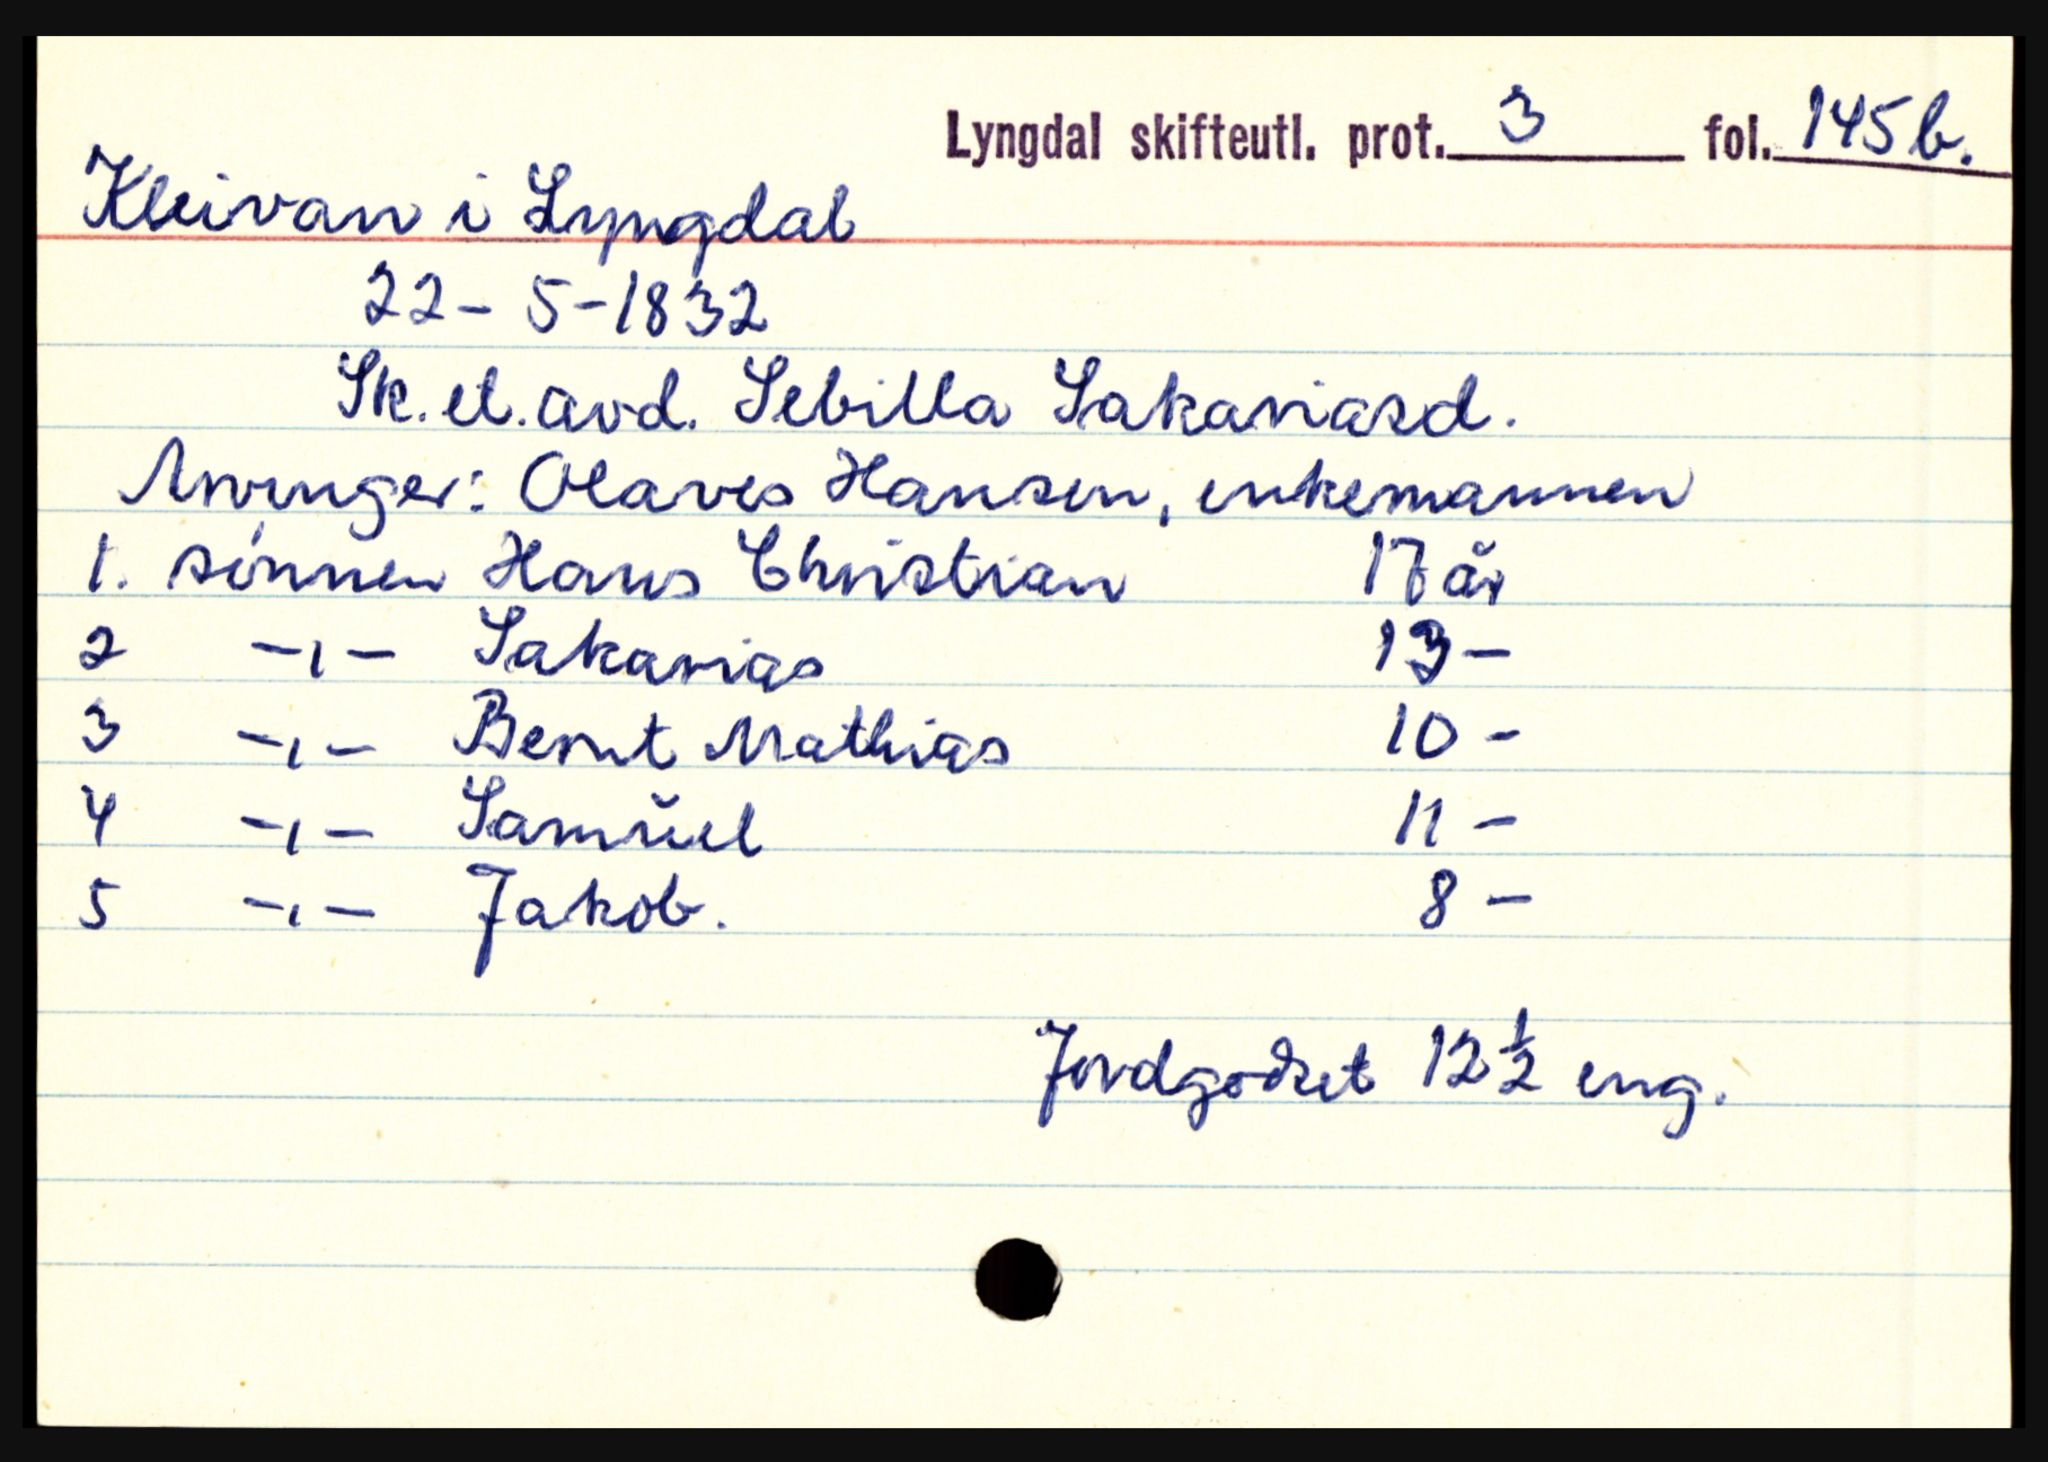 Lyngdal skifteutl. prot. 3 fol. 145 b.
Kleivan i Lyngdal
22 - 5 - 1832
Sk. et. avd. Sebilla Sakariasd.
Arvinger: Olaves Hansen, enkemannen
1. sønnen Hans Christian 17 år
2 -"- Sakarias 13 -
3 -"- Bernt Mathias 10 -
4 -"- Samuel 11 -
5 -"- Jakob. 8 -
Jordgodset 12 1/2 eng.